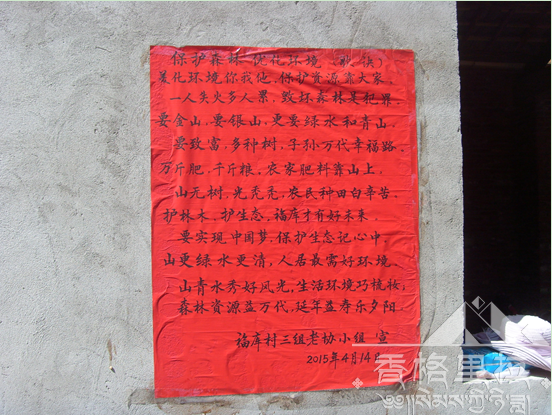 保护森林 优化环境（歌谣）
美化环境你我他，保护资源靠大家，
一人失火多人累，毁坏森林是犯罪。
要金山，要银山，更要绿水和青山，
要致富，多种树，子孙万代幸福路。
万斤肥，千斤粮，农家肥料靠山上，
山无树，光秃秃，农民种田白辛苦。
护林木，护生态，福库才有好未来，
要实现中国梦，保护生态记心中。
山更绿水更清，人居最需好环境，
山青水秀好风光，生活环境巧梳妆。
森林资源益万代，延年益寿乐夕阳。
福库村三组老协小组 宣
2015年4月14日
香格里拉